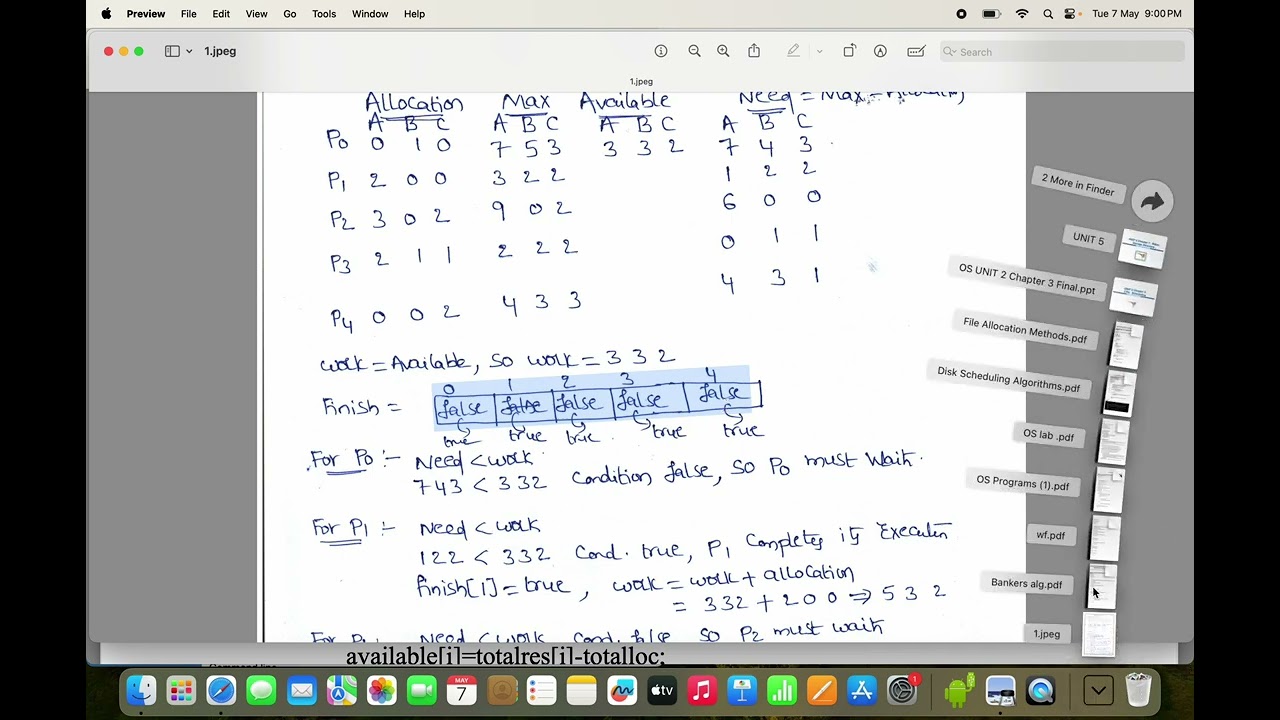 Preview File Edit View Go Tools Window Help Tue 7 May 9:00 PM
1.jpeg Search
1.jpeg
Allocation Max Available Need = Max - Allocation
A B C A B C A B C A B C
P0 0 1 0 7 5 3 3 3 2 7 4 3
P1 2 0 0 3 2 2 1 2 2
P2 3 0 2 9 0 2 6 0 0
P3 2 1 1 2 2 2 0 1 1
P4 0 0 2 4 3 3 4 3 1
work = Available, so work = 3 3 2
0 1 2 3 4
Finish = false false false false false
true true true true true
For P0 :- Need < work
743 < 332 Condition false, so P0 must wait.
For P1 :- Need < work
122 < 332 Cond. true, P1 Completes its Execution
Finish[1] = true, work = work + allocation
= 332 + 200 => 5 3 2
For P2 Need < work Cond. false so P2 must wait
available[i]=totalres[i]-totalloc;
2 More in Finder
UNIT 5
OS UNIT 2 Chapter 3 Final.ppt
File Allocation Methods.pdf
Disk Scheduling Algorithms.pdf
OS lab .pdf
OS Programs (1).pdf
wf.pdf
Bankers alg.pdf
1.jpeg
MAY
7
tv
1